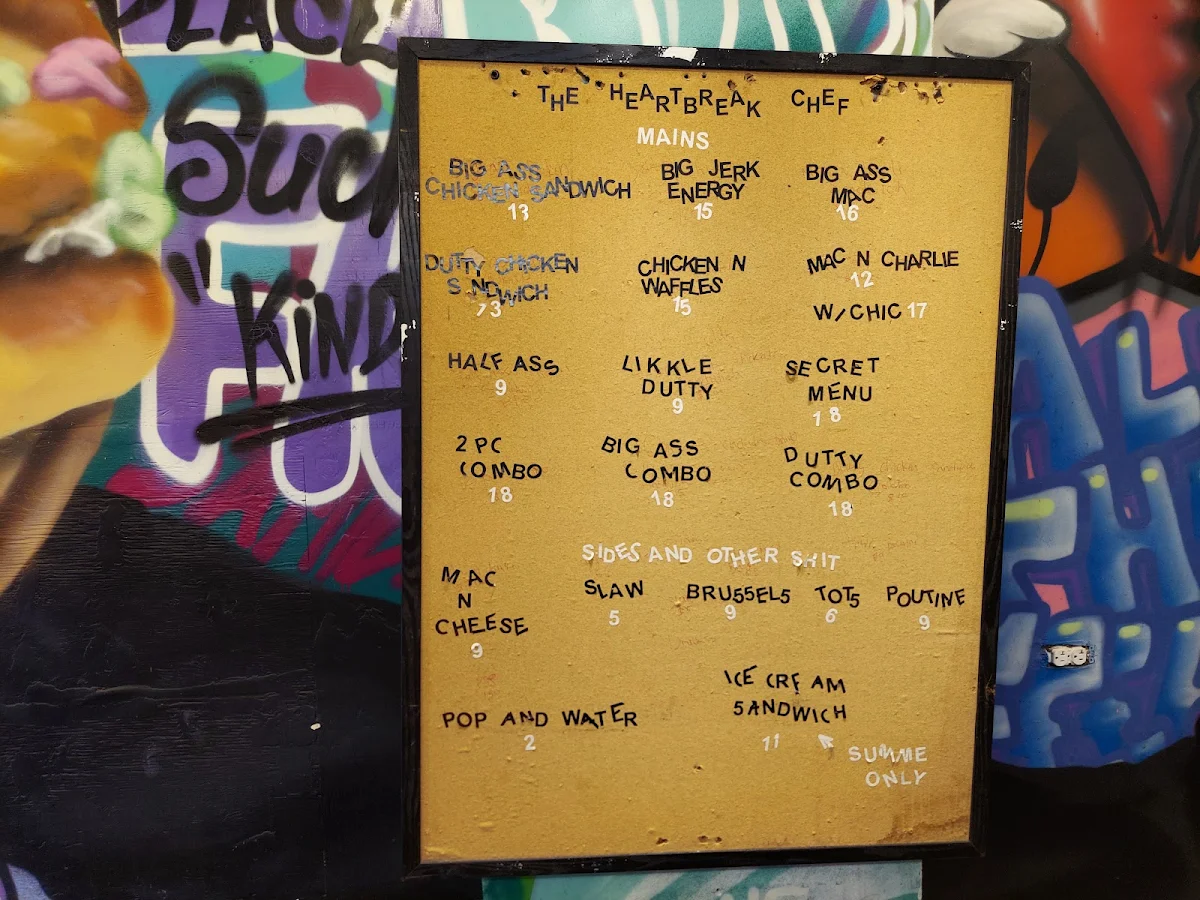 PLACE
Such
"KiND
THE HEARTBREAK CHEF
MAINS
BIG ASS
CHICKEN SANDWICH
13
BIG JERK
ENERGY
15
BIG ASS
MAC
16
DUTTY CHICKEN
SANDWICH
13
CHICKEN N
WAFFLES
15
MAC N CHARLIE
12
W/CHIC 17
HALF ASS
9
LIKKLE
DUTTY
9
SECRET
MENU
18
2 PC
COMBO
18
BIG ASS
COMBO
18
DUTTY
COMBO
18
SIDES AND OTHER SHIT
MAC
N
CHEESE
9
SLAW
5
BRUSSELS
9
TOTS
6
POUTINE
9
POP AND WATER
2
ICE CREAM
SANDWICH
11
SUMME
ONLY